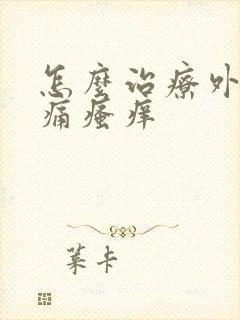 怎麼治療外
痛瘙痒
葉卡